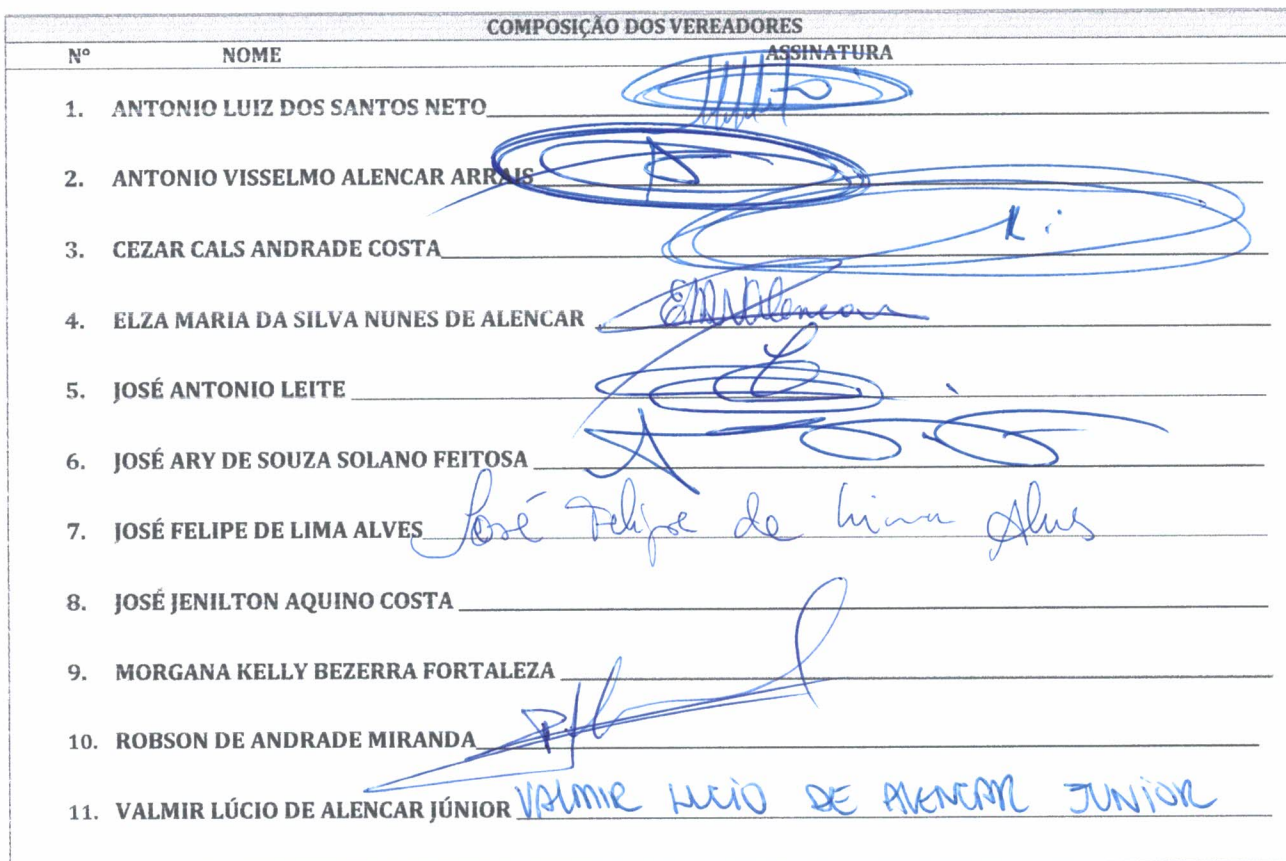 COMPOSIÇÃO DOS VEREADORES
Nº NOME ASSINATURA
1. ANTONIO LUIZ DOS SANTOS NETO
2. ANTONIO VISSELMO ALENCAR ARRAIS
3. CEZAR CALS ANDRADE COSTA
4. ELZA MARIA DA SILVA NUNES DE ALENCAR EMNAlencar
5. JOSÉ ANTONIO LEITE
6. JOSÉ ARY DE SOUZA SOLANO FEITOSA
7. JOSÉ FELIPE DE LIMA ALVES José Felipe de Lima Alves
8. JOSÉ JENILTON AQUINO COSTA
9. MORGANA KELLY BEZERRA FORTALEZA
10. ROBSON DE ANDRADE MIRANDA
11. VALMIR LÚCIO DE ALENCAR JÚNIOR VALMIR LUCIO DE ALENCAR JUNIOR